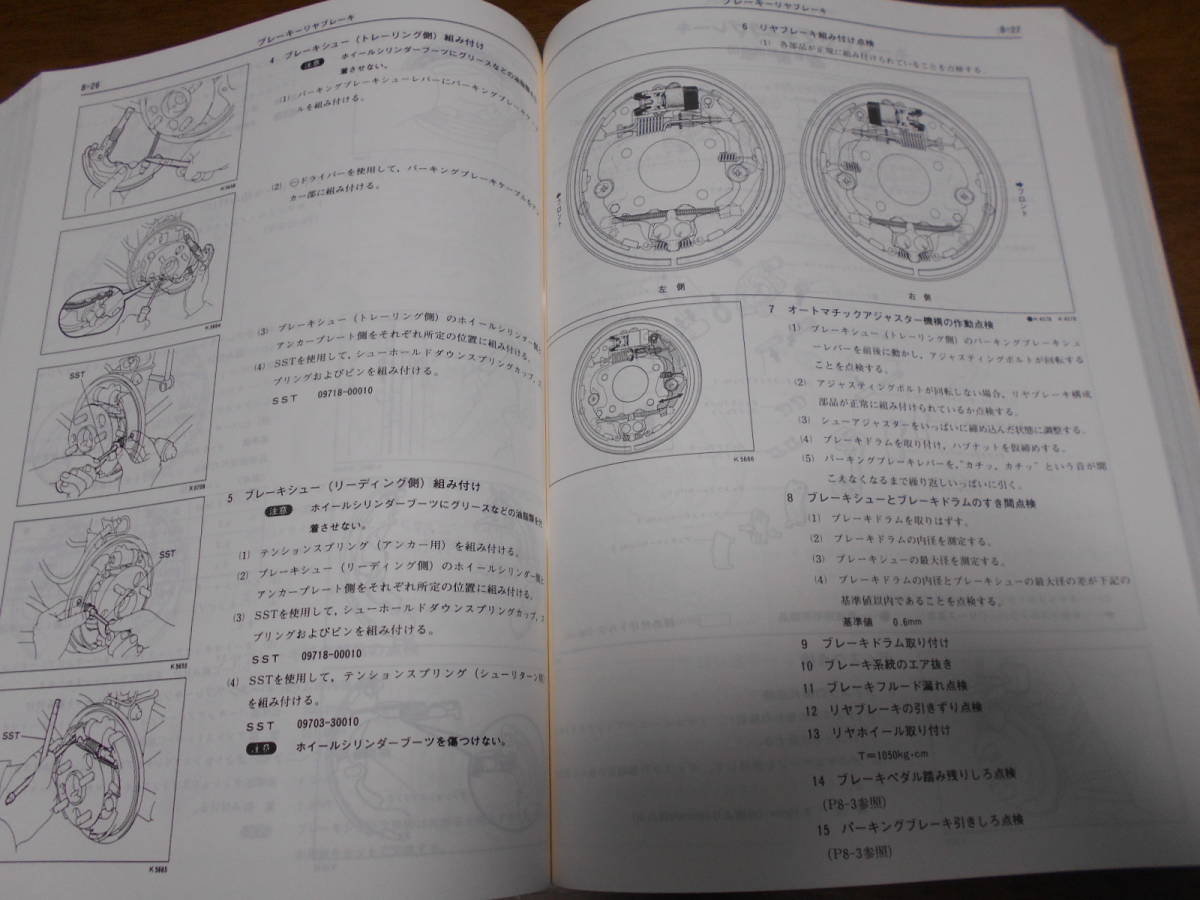 ブレーキーリヤブレーキ
8-26
4 ブレーキシュー(トレーリング側)組み付け
注意 ホイールシリンダーブーツにグリースなどの油脂類を付
着させない。
(1) パーキングブレーキシューレバーにパーキングブレーキケーブ
ルを組み付ける。
(2) ㊀ドライバーを使用して,パーキングブレーキケーブルを
カー部に組み付ける。
(3) ブレーキシュー(トレーリング側)のホイールシリンダー側と
アンカープレート側をそれぞれ所定の位置に組み付ける。
(4) SSTを使用して,シューホールドダウンスプリングカップ,ス
プリングおよびピンを組み付ける。
SST 09718-00010
5 ブレーキシュー(リーディング側)組み付け
注意 ホイールシリンダーブーツにグリースなどの油脂類を付
着させない。
(1) テンションスプリング(アンカー用)を組み付ける。
(2) ブレーキシュー(リーディング側)のホイールシリンダー側と
アンカープレート側をそれぞれ所定の位置に組み付ける。
(3) SSTを使用して,シューホールドダウンスプリングカップ,ス
プリングおよびピンを組み付ける。
SST 09718-00010
(4) SSTを使用して,テンションスプリング(シューリターン用)
を組み付ける。
SST 09703-30010
注意 ホイールシリンダーブーツを傷つけない。
SST
SST
K5655
SST
K5665
ブレーキーリヤブレーキ
8-27
6 リヤブレーキ組み付け点検
(1) 各部品が正規に組み付けられていることを点検する。
フロント
フロント
左側
右側
K5666
7 オートマチックアジャスター機構の作動点検
(1) ブレーキシュー(トレーリング側)のパーキングブレーキシュ
ーレバーを前後に動かし,アジャスティングボルトが回転する
ことを点検する。
(2) アジャスティングボルトが回転しない場合,リヤブレーキ構成
部品が正常に組み付けられているか点検する。
(3) シューアジャスターをいっぱいに締め込んだ状態に調整する。
(4) ブレーキドラムを取り付け,ハブナットを仮締めする。
(5) パーキングブレーキレバーを,"カチッ,カチッ"という音が聞
こえなくなるまで繰り返しいっぱいに引く。
8 ブレーキシューとブレーキドラムのすき間点検
(1) ブレーキドラムを取りはずす。
(2) ブレーキドラムの内径を測定する。
(3) ブレーキシューの最大径を測定する。
(4) ブレーキドラムの内径とブレーキシューの最大径の差が下記の
基準値以内であることを点検する。
基準値 0.6mm
9 ブレーキドラム取り付け
10 ブレーキ系統のエア抜き
11 ブレーキフルード漏れ点検
12 リヤブレーキの引きずり点検
13 リヤホイール取り付け
T=1050kg·cm
14 ブレーキペダル踏み残りしろ点検
(P8-3参照)
15 パーキングブレーキ引きしろ点検
(P8-3参照)